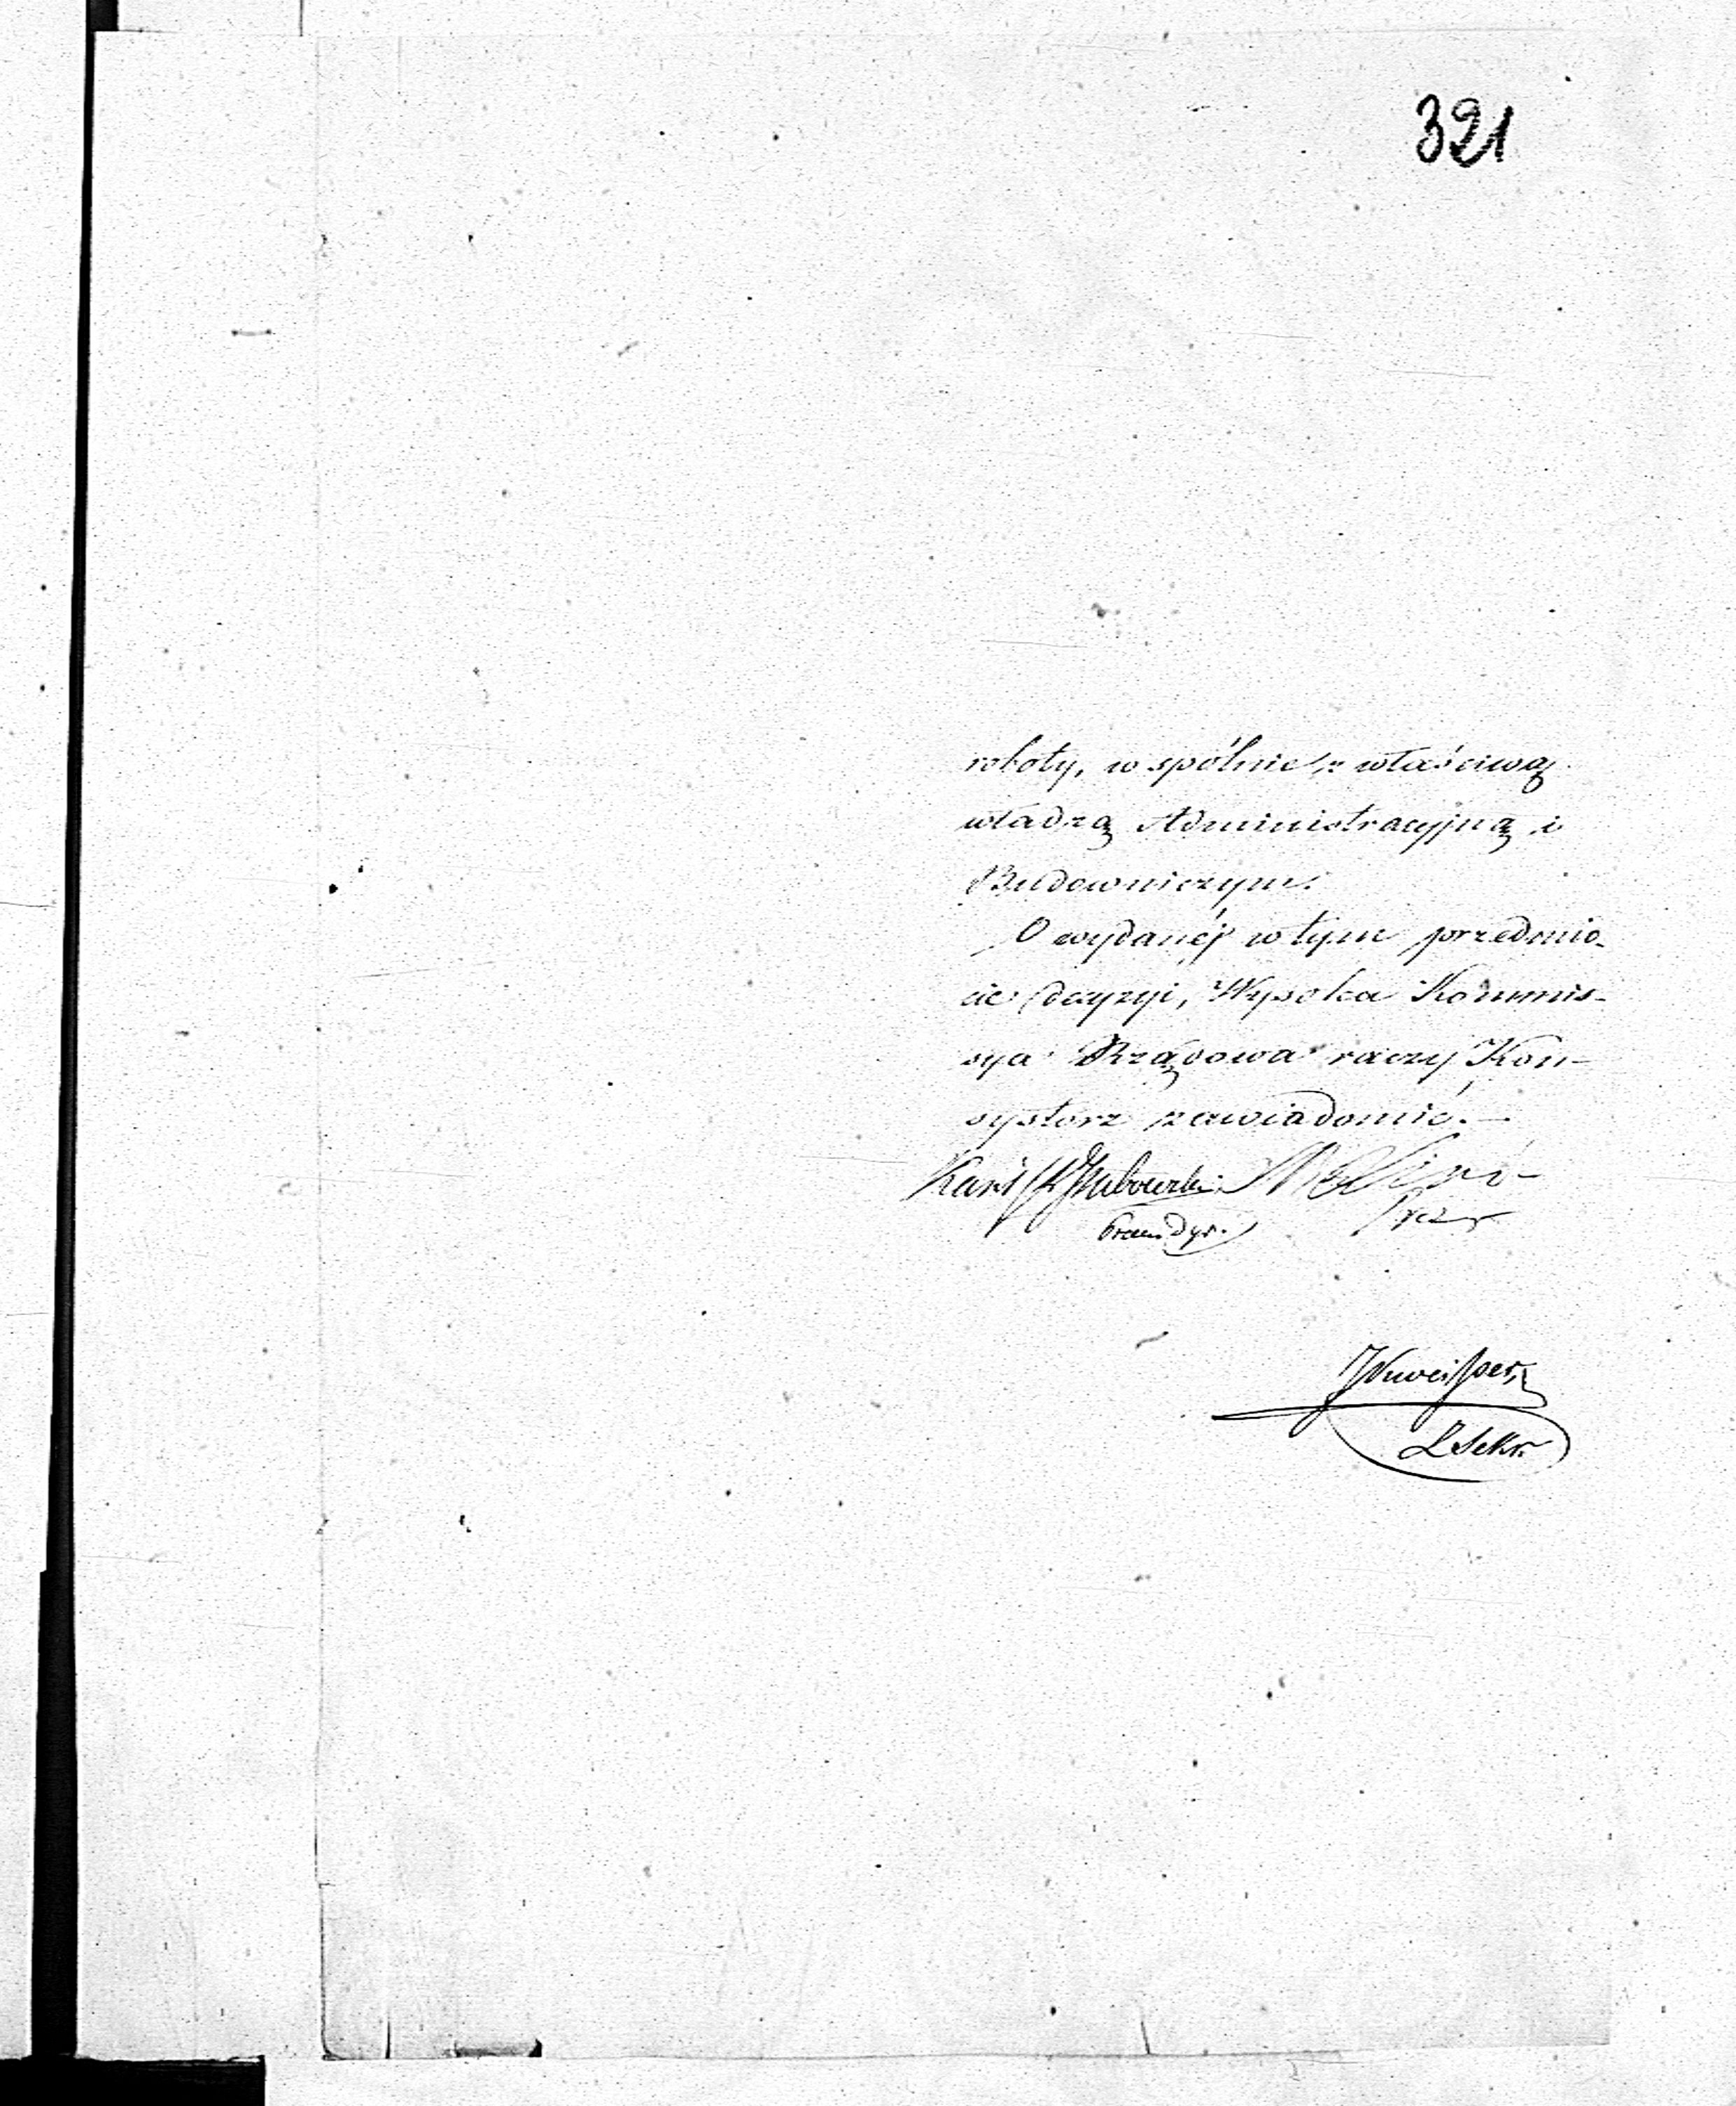 321
roboty, w spólnie z właściwą
władzą Administracyjną i
Budowniczym.
O wydanéj w tym przedmio-
cie decyzyi, Wysoka Kommis-
sya Rządowa raczy Kon-
systorz zawiadomić. —
Karol
Sekr.